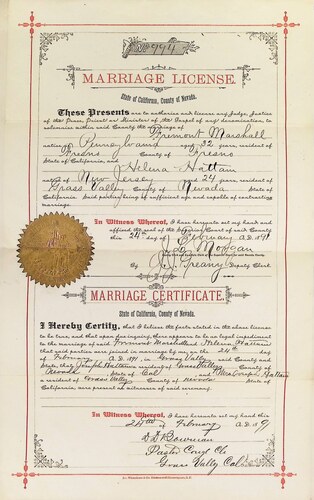 No 994
MARRIAGE LICENSE.
State of California, County of Nevada.
These Presents are to authorize and license any Judge, Justice
of the Peace, Priest or Minister of the Gospel of any denomination, to
solemnize within said County the marriage of
Fremont Marshall
native of Pennsylvania aged 32 years, resident of
Fresno County of Fresno
State of California, and
Helena Hattam
native of New Jersey aged 24 years, resident of
Grass Valley County of Nevada State of
California. Said parties being of sufficient age and capable of contracting
marriage.
In Witness Whereof, I have hereunto set my hand and
affixed the seal of the Superior Court of said County
this 24th day of February A.D. 1891
Morgan
By Deputy Clerk
MARRIAGE CERTIFICATE.
State of California, County of Nevada.
I Hereby Certify, that I believe the facts stated in the above license
to be true, and that upon due inquiry, there appears to be no legal impediment
to the marriage of said Fremont Marshall and Helena Hattam
that said parties were joined in marriage by me, on the 24th day
of February A.D. 1891 in Grass Valley County and
State; that Joseph Hattam a resident of Grass Valley
Nevada State of Cal and Mrs Hattam
a resident of Grass Valley County of Nevada State of
California, were present as witnesses of said ceremony.
In Witness Whereof, I have hereunto set my hand this
24th February A.D. 1891
Bowman
Pastor Cong Ch
Grass Valley Cal